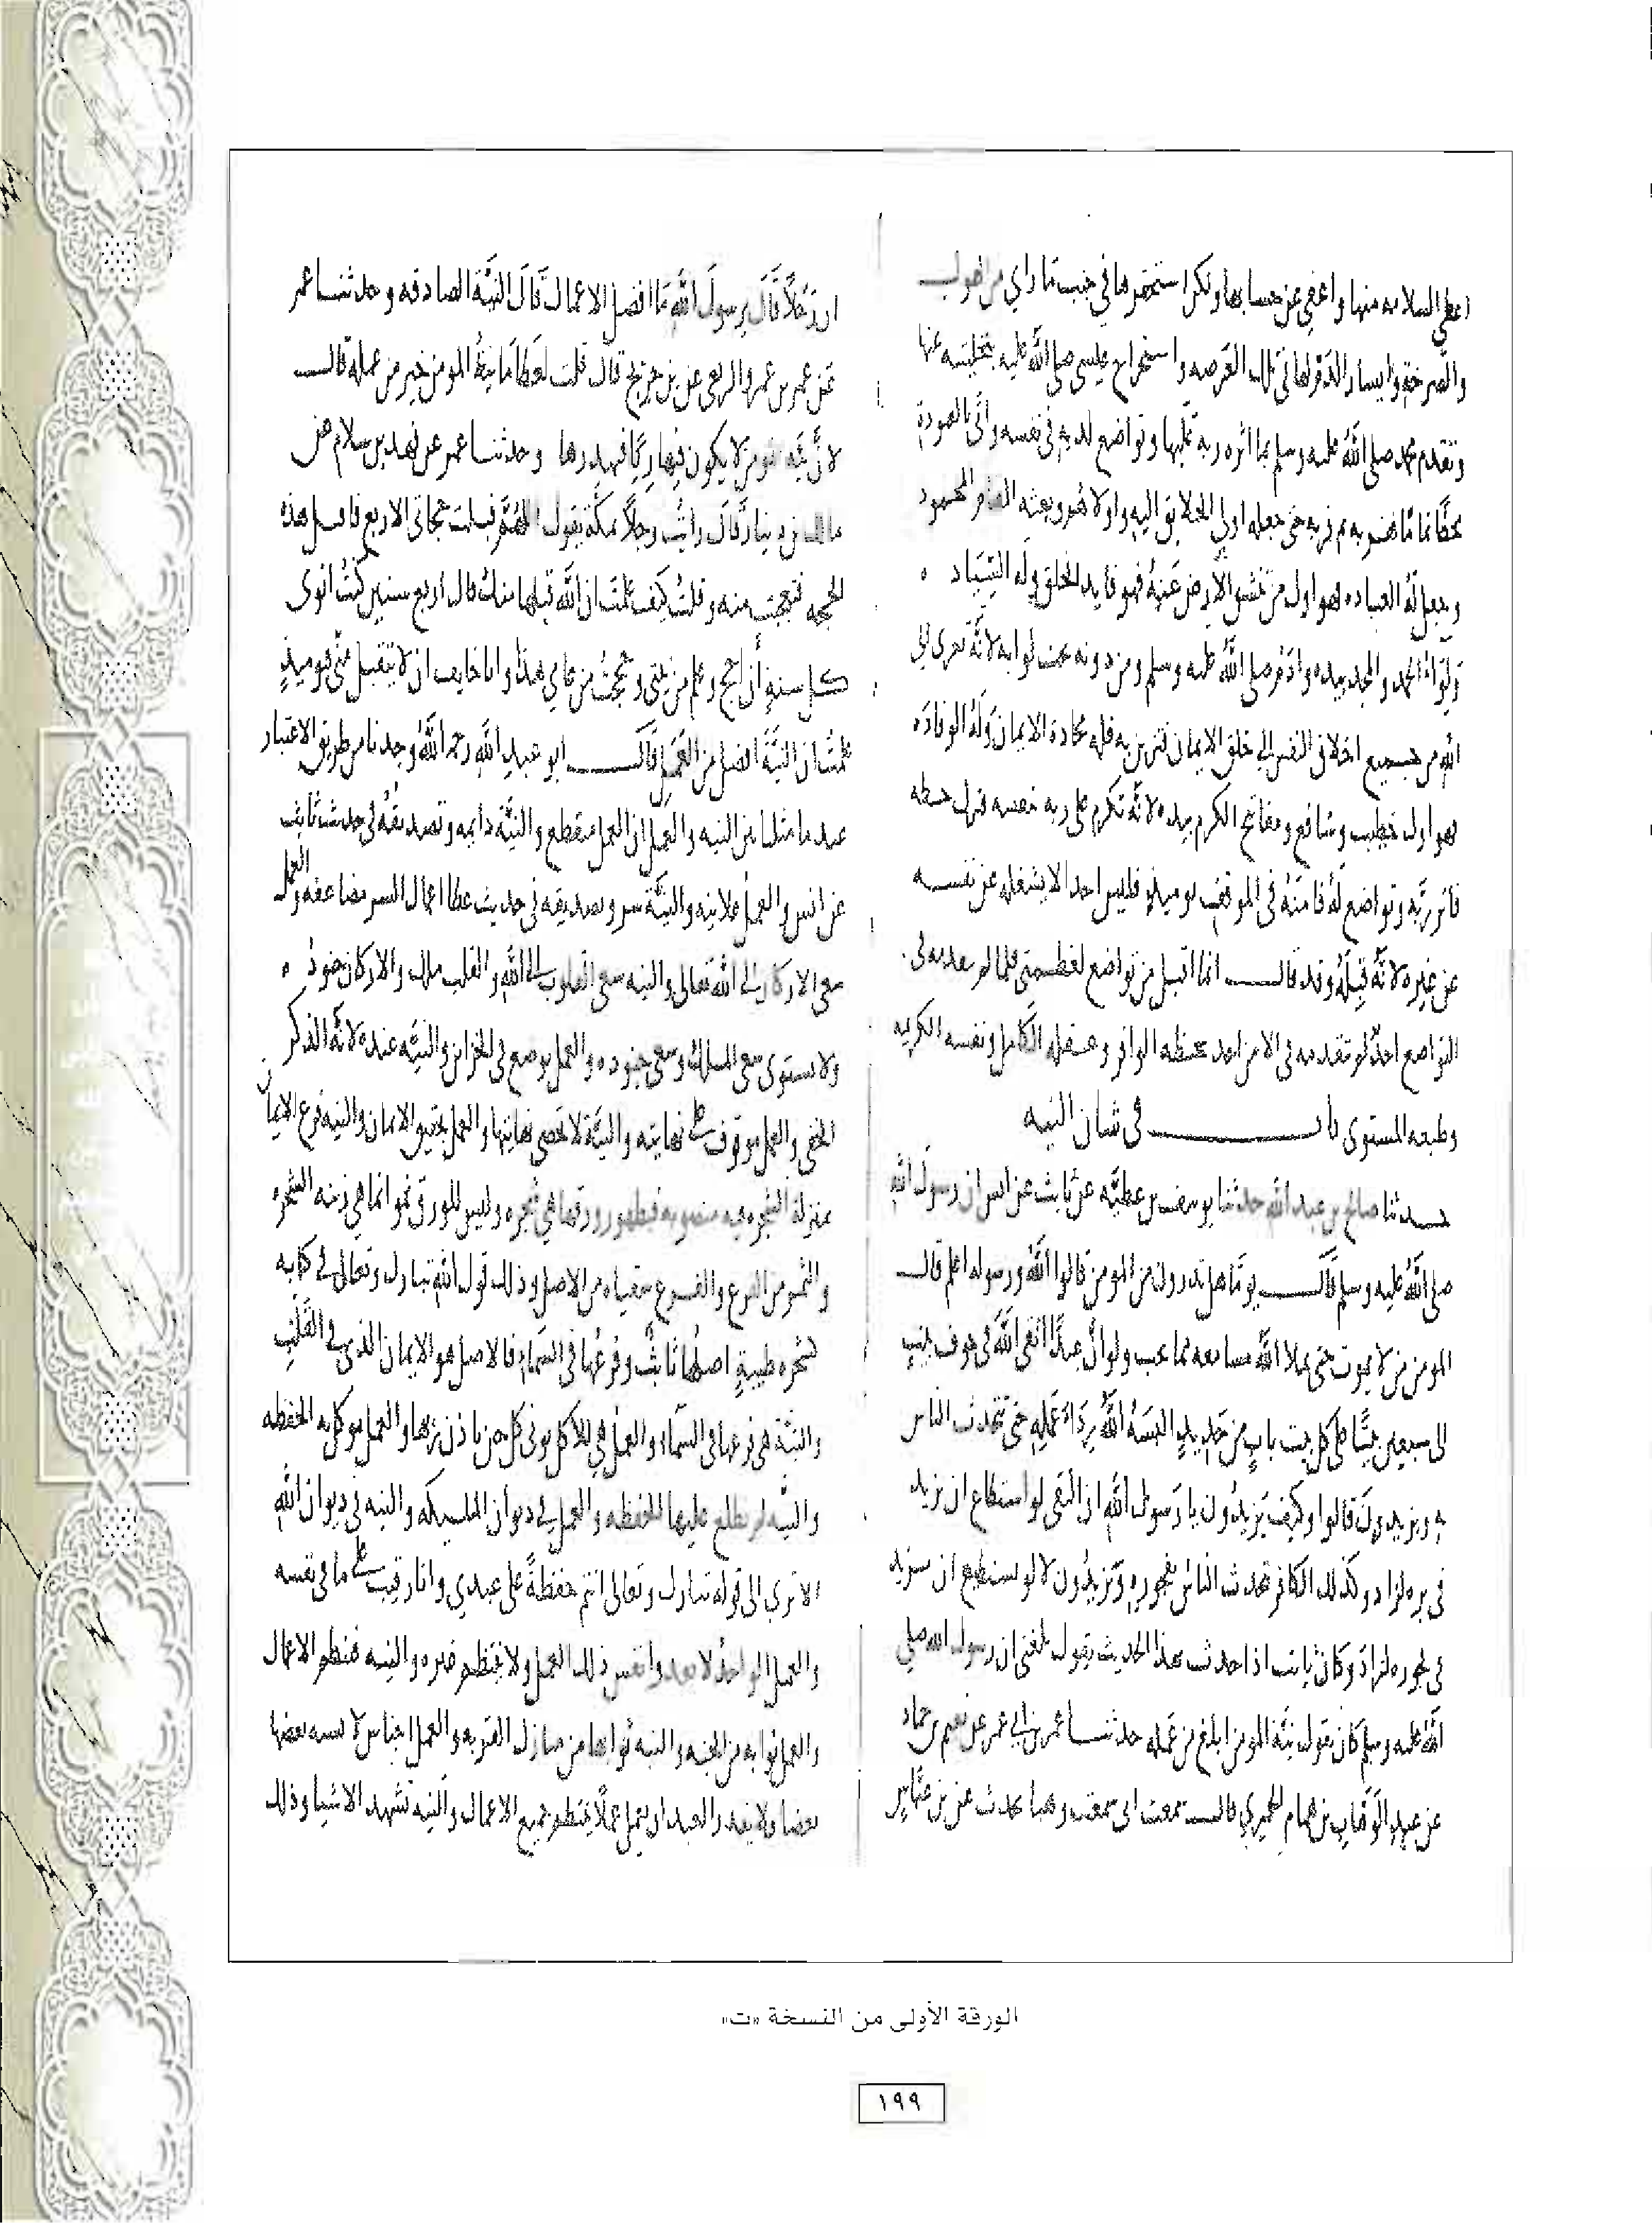 اعطى السلامه منها واعفى عن حسابها ولكن استحقرها في جنب ما راي من اهوال
والصرخة وايسار الذفر لها في تلك العرصه واستخراج عيسى صلى الله عليه بتخليته عنها
وتقدم محمد صلى الله عليه وسلم بما اثره ربه عليها وتواضع لديه في نفسه واتى بالعبودة
حتى جعله اولى الخلايق اليه واولاهم وبعثه المقام المحمود
وجعل له العباده فهو اول من تنشق الارض عنه فهو قايد الخلق وله
ولواء الحمد والمجد بيده وادم صلى الله عليه وسلم ومن دونه تحت لوايه لانه تعرى الى
الله من جميع اخلاق النفس الى خلق الايمان فتزين به فله الايمان وله الوفادة
فهو اول خطيب وشافع ومفاتيح الكرم بيده لانه تكرم على ربه بنفسه فترك حظه
فاثر ربه وتواضع له فامنه في الموقف يوميذ فليس احد الا يشغله عن نفسه
عن غيره لانه قبله وقد قال انما اقبل من تواضع لعظمتي فلما لم
التواضع احد لم تقدمه في الامر احد بحظه الوافر وعقله الكامل ونفسه الكريمه
وطبعه المستوى باب في شان النيه
حدثنا صالح بن عبد الله حدثنا يوسف بن عطية عن ثابت عن انس ان رسول الله
صلى الله عليه وسلم قال يوما هل تدرون من المومن قالوا الله ورسوله اعلم قال
المومن من لا يموت حتى يملا الله مسامعه مما يحب ولو ان عبدا اتقى الله في جوف بيت
الى سبعين بيتا على كل بيت باب من حديد البسه الله رداء عمله حتى يتحدث الناس
به ويزيدون قالوا وكيف يزيدون يا رسول الله ان التقى لو استطاع ان يزيد
في بره لزاد وكذلك الكافر تحدث الناس بفجوره ويزيدون لانه لو يستطيع ان يزيد
في فجوره لزاد وكان ثابت اذا حدث بهذا الحديث يقول بلغني ان رسول الله صلى
الله عليه وسلم كان يقول نية المومن ابلغ من عمله حدثنا عمر بن ابي عمر عن نعيم بن حماد
عن عبد الوهاب بن همام الحميري قال سمعت ابي سمعت وهبا يحدث عن بن عباس
ان رجلا قال يرسول الله ما افضل الاعمال قال النية الصادقه وحدثنا عمر
عن عمر بن عمرو الربعي عن بن جريج قال قلت لعطا ما نية المومن خير من عمله قال
لان نية المومن لا يكون فيها ريا فيهدرها وحدثنا عمر عن فهد بن سلام عن
مالك بن دينار قال رايت رجلا بمكة يقول اللهم قبلت حجاتي الاربع فاقبل هذه
الحجه فتعجبت منه وقلت كيف علمت ان الله قبلها منك قال اربع سنين كنت انوى
كل سنة ان احج وعلم من نيتي وحججت من عامي هذا وانا خايف ان لا يتقبل مني فيوميذ
علمت ان النية افضل من العمل قال ابو عبد الله رحمه الله وجدنا من طريق الاعتبار
عندما مثلنا بين النيه والعمل ان العمل منقطع والنية دايمه وتصديقه في حديث ثابت
عن انس والعمل علانيه والنية سر وتصديقه في حديث عطا اعمال السر مضاعفه والعمل
سعى الاركان الى الله تعالى والنيه سعى القلوب الى الله والقلب ملك والاركان جنود
ولا يستوى سعى الملك وسعى جنوده والعمل يوضع في الخزاين والنيه عنده لانه الذكر
الخفي والعمل موقوف على نهايته والنية لا تحصى نهايتها والعمل تحقيق الايمان والنيه فرع الايمان
بمنزلة الشجره فيه منصوبه فيظهر ورقها هي شجره وليس للورق نمو انما هي زينه الشجره
والثمر من الفرع والفرع سقياه من الاصل وذلك قول الله تبارك وتعالى في كتابه
كشجره طيبة اصلها ثابت وفرعها في السماء فالاصل هو الايمان الذي في القلب
والنية هي فرعها في السماء والعمل هي الاكل توتى كل حين باذن ربها والعمل موكل به الحفظه
والنية لم يطلع عليها الحفظه والعمل في ديوان الملايكه والنيه في ديوان الله
الا ترى الى قوله تبارك وتعالى انتم حفظة على عبدي وانا رقيب على ما في نفسه
والعمل الواحد لا يعدوا نفس ذلك العمل ولا ينتظم غيره والنيه تنتظم الاعمال
والعمل ثوابه من الجنه والنيه ثوابها من منازل القربه والعمل اجناس لا يشبه بعضها
بعضا ولا يقدر العبد ان يعمل عملا ينتظم جميع الاعمال والنيه تشهد الاشيا وذلك
الورقة الأولى من النسخة «ت»
١٩٩